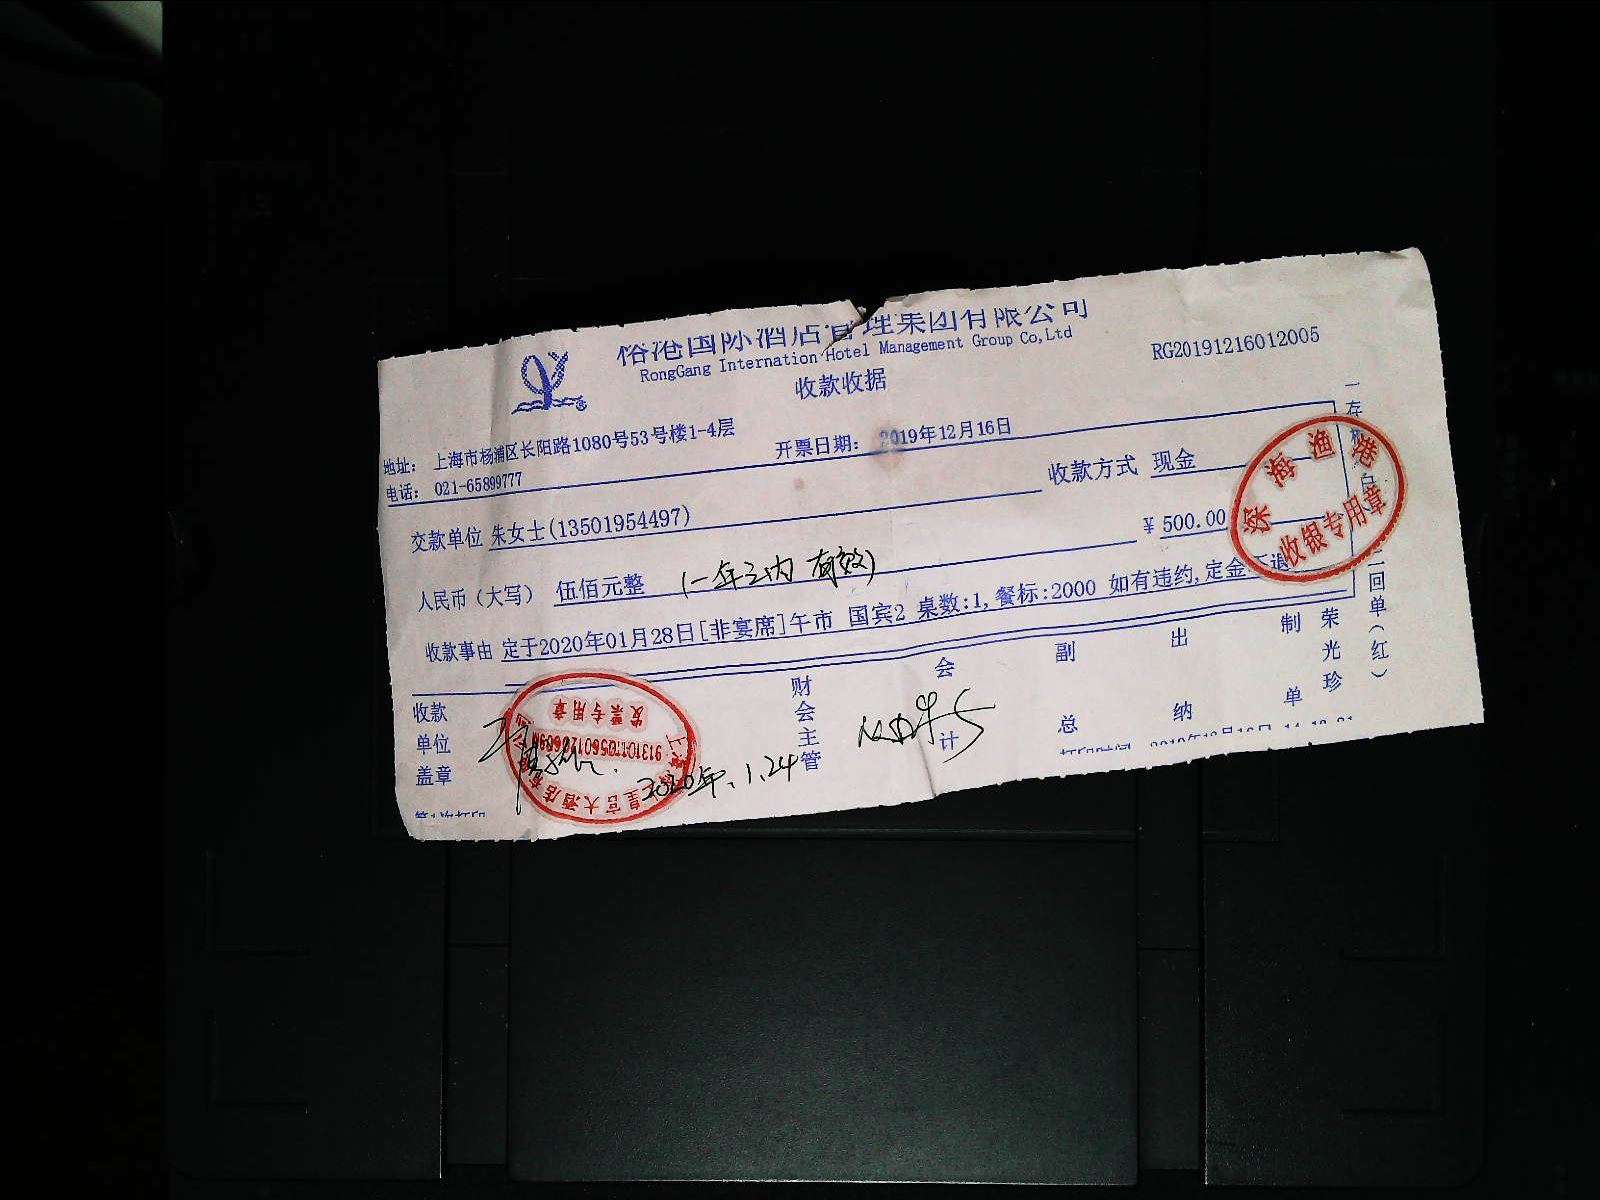 裕港国际酒店管理集团有限公司
RongGang Internation Hotel Management Group Co,Ltd
RG20191216012005
收款收据
地址: 上海市杨浦区长阳路1080号53号楼1-4层
电话: 021-65899777
开票日期: 2019年12月16日
收款方式 现金
交款单位 朱女士(13501954497)
人民币(大写) 伍佰元整 (一年之内有效)
¥ 500.00
收款事由 定于2020年01月28日[非宴席]午市 国宾2 桌数:1,餐标:2000 如有违约,定金不退
收款单位盖章
财会主管
会计
副总
出纳
制单
荣光珍
2020年.1.24
深海渔港
收银专用章
发票专用章
二回单(红)
第1次打印
打印时间 2019年12月16日